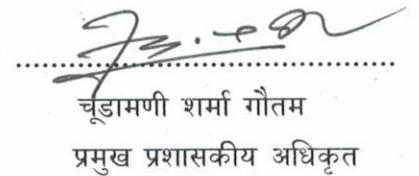 चूडामणी शर्मा गौतम
प्रमुख प्रशासकीय अधिकृत